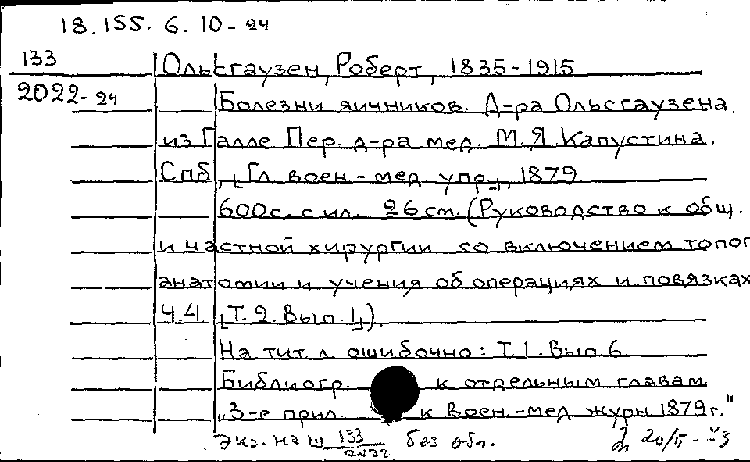 18.155.6.10-24
133 Ольсгаузен, Роберт, 1835-1915
2022-24 Болезни яичников. Д-ра Ольсгаузена
из Галле Пер. д-ра мед. М.Я. Капустина.
Спб., [Гл воен-мед упр.], 1879
600с. с ил. 26 см. (Руководство к общ.
и частной хирургии со включением топог
анатомии и учения об операциях и повязках
Ч.4. [Т.2. Вып. 1]).
На тит л ошибочно: Т.1. Вып 6
Библиогр. к отдельным главам
"3-е прил. к Воен.-мед журн 1879г."
Экз. на ш 133/2022 без обл.
20/II-